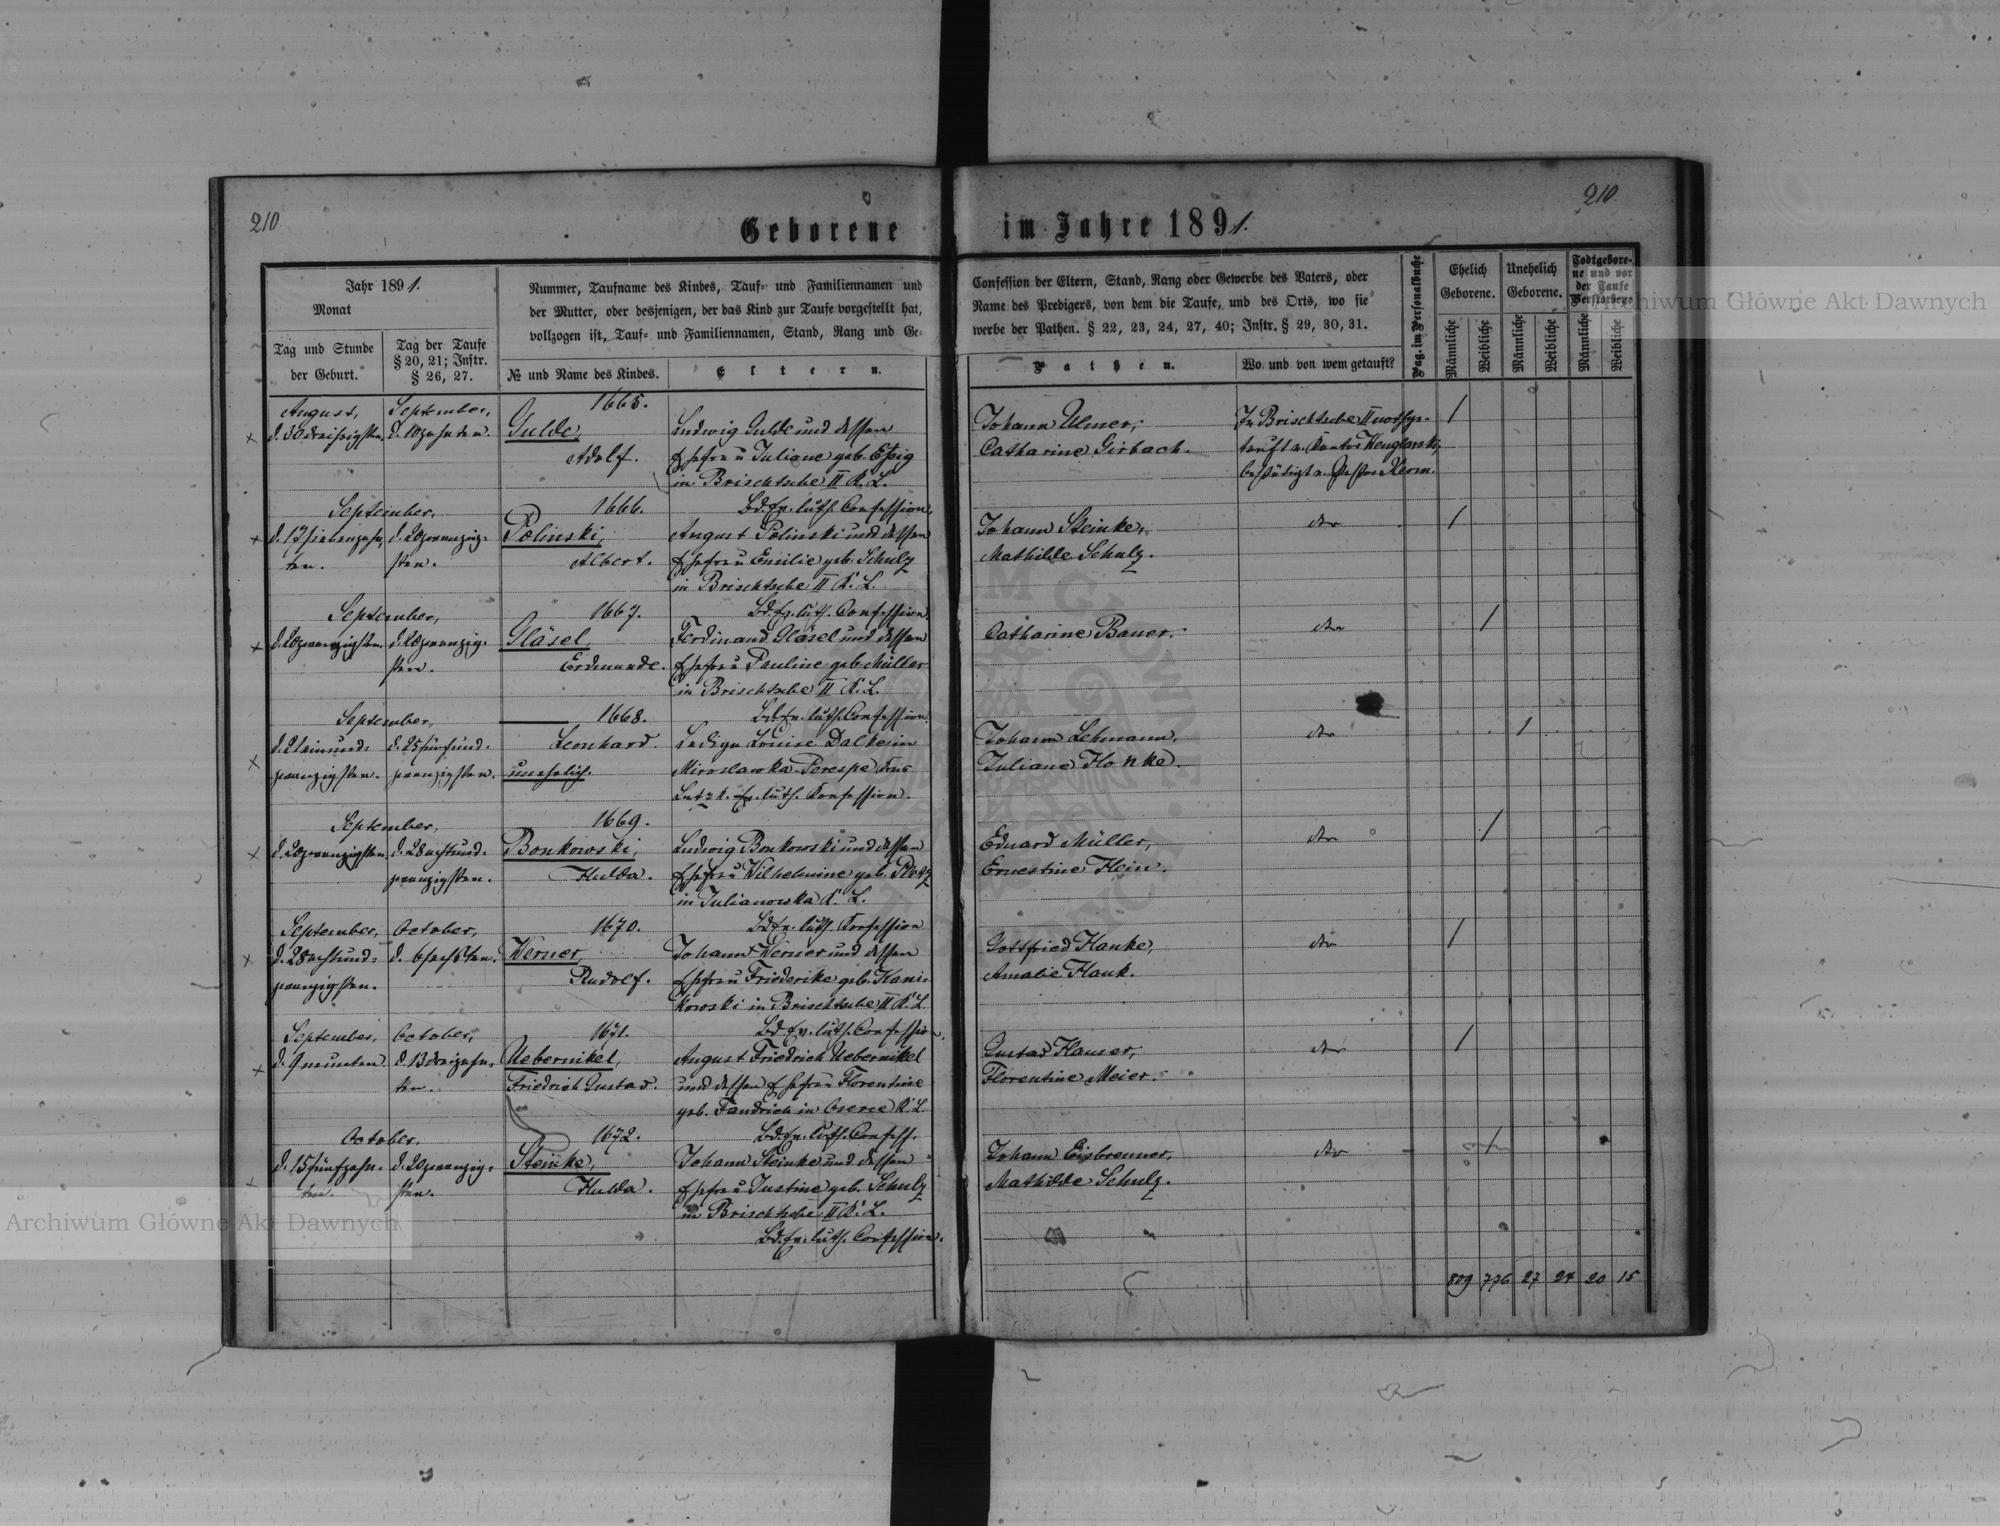 210
210
Geborene im Jahre 1891.
Jahr 1891.
Monat
Tag und Stunde
der Geburt.
Tag der Taufe
§ 20, 21; Instr.
§ 26, 27.
Nummer, Taufname des Kindes, Tauf- und Familiennamen und
der Mutter, oder desjenigen, der das Kind zur Taufe vorgestellt hat,
vollzogen ist, Tauf- und Familiennamen, Stand, Rang und Ge-
№ und Name des Kindes.
Eltern.
Confession der Eltern, Stand, Rang oder Gewerbe des Vaters, oder
Name des Predigers, von dem die Taufe, und des Orts, wo sie
werbe der Pathen. § 22, 23, 24, 27, 40; Instr. § 29, 30, 31.
Pathen.
Wo und von wem getauft?
Pag. im Personalbuche
Ehelich
Geborene.
Unehelich
Geborene.
Todtgebore-
ne und vor
der Taufe
Verstorbene
Männliche
Weibliche
Männliche
Weibliche
Männliche
Weibliche
August,
d. 30 dreißigsten
September,
d. 10 zehnten.
1665.
Gulde,
Adolf.
Ludwig Gulde und dessen
Ehefrau Juliane geb. Eßig
in Brischtsche II K. L.
Bd. Ev. luth. Confession.
Johann Ulmer,
Catharine Girbach.
In Brischtsche II nothge-
tauft v. Kantor Wenglarski,
bestätigt v. Pastor Kerm.
/
September,
d. 17 siebenzehn-
ten.
d. 20 zwanzig-
sten.
1666.
Polinski,
Albert.
August Polinski und dessen
Ehefrau Emilie geb. Schulz
in Brischtsche II K. L.
Bd. Ev. luth. Confession.
Johann Steinke,
Mathilde Schulz.
dto
/
September,
d. 20 zwanzigsten
d. 20 zwanzig-
sten.
1667.
Gläsel
Erdmunde.
Ferdinand Gläsel und dessen
Ehefrau Pauline geb. Müller
in Brischtsche II K. L.
Bd. Ev. luth. Confession.
Catharine Bauer.
dto
/
September,
d. 21 einund-
zwanzigsten.
d. 25 fünfund-
zwanzigsten.
1668.
Leonhard.
unehelich.
Ledige Louise Dalke in
Miroslawka-Perespe
Lutzk. Ev. luth. Konfession.
Johann Lehmann,
Juliane Honke.
dto
/
September,
d. 20 zwanzigsten
d. 28 achtund-
zwanzigsten.
1669.
Bonkowski,
Hulda.
Ludwig Bonkowski und dessen
Ehefrau Wilhelmine geb. Pletz
in Julianowka K. L.
Bd. Ev. luth. Konfession
Eduard Müller,
Ernestine Hein.
dto
/
September,
d. 28 achtund-
zwanzigsten.
October,
d. 6 sechsten.
1670.
Werner,
Rudolf.
Johann Werner und dessen
Ehefrau Friederike geb. Kanis-
kowski in Brischtsche II K. L.
Bd. Ev. luth. Confession.
Gottfried Hanke,
Amalie Hauk.
dto
/
September,
d. 9 neunten.
October,
d. 13 dreizehn-
ten.
1671.
Uebernikel,
Friedrich Gustav.
August Friedrich Uebernikel
und dessen Ehefrau Florentine
geb. Fandrich in Oserce K. L.
Bd. Ev. luth. Confess.
Gustav Hauser,
Florentine Meier.
dto
/
October,
d. 15 fünfzehn-
ten.
d. 20 zwanzig-
sten.
1672.
Steinke,
Hulda.
Johann Steinke und dessen
Ehefrau Justine geb. Schulz
in Brischtsche II K. L.
Bd. Ev. luth. Confession.
Johann Eisbrenner,
Mathilde Schulz.
dto
/
809 776 27 24 20 15
Archiwum Główne Akt Dawnych
Archiwum Główne Akt Dawnych